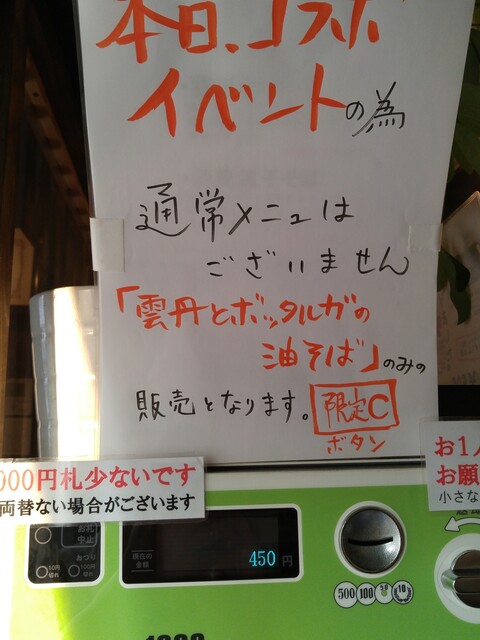 本日、コスポ
イベントの為
通常メニューは
ございません
「雲丹とボッタルガの
油そば」のみの
販売となります。限定C
ボタン
000円札少ないです
両替ない場合がございます
お1人
お願
小さな
お札
中止
おつり
10円
切れ
100円
切れ
現在の
金額
450円
500 100 50 10